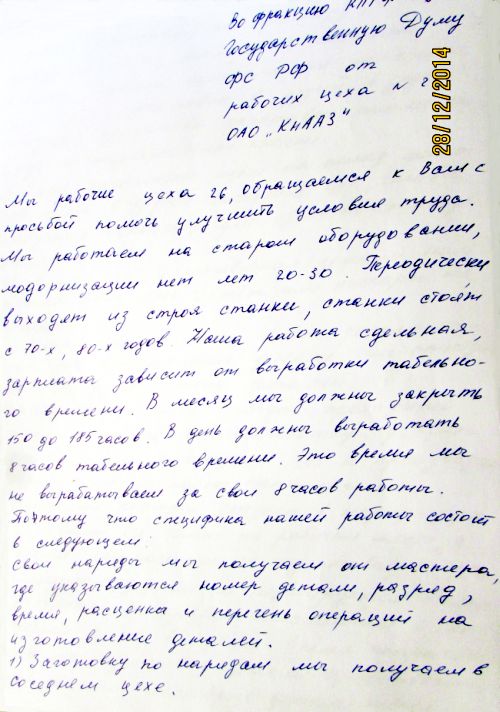 Во фракцию
Государственную Думу
ФС РФ от
рабочих цеха № 2
ОАО „КнААЗ"
28/12/2014
Мы рабочие цеха 26, обращаемся к Вам с
просьбой помочь улучшить условия труда.
Мы работаем на старом оборудовании,
модорнизации нет лет 20-30. Переодически
выходят из строя станки, станки стоят
с 70-х, 80-х годов. Наша работа сдельная,
зарплата зависит от выработки табельно-
го времени. В месяц мы должны закрыть
150 до 185 часов. В день должны выработать
8 часов табельного времени. Это время мы
не вырабатываем за свои 8 часов работы.
Поэтому что специфика нашей работы состоит
в следующем:
свои наряды мы получаем от мастера,
где указываются номер детали, разряд,
время, расценка и перечень операций на
изготовление деталей.
1) Заготовку по нарядам мы получаем в
соседнем цехе.